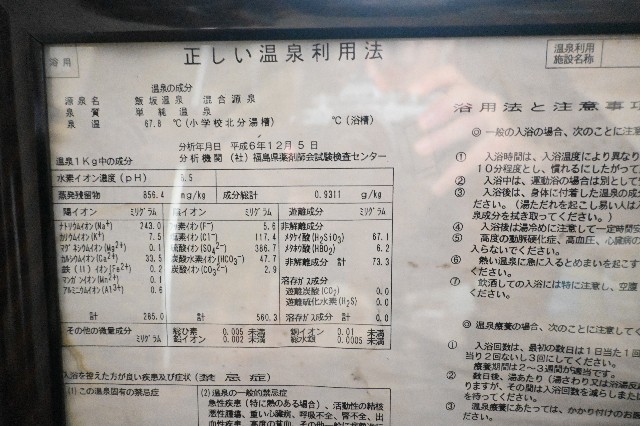 浴用
正しい温泉利用法
温泉利用
施設名称
温泉の成分
源泉名 飯坂温泉 混合源泉
泉質 単純温泉
泉温 67.8 ℃(小学校北分湯槽) ℃(浴槽)
分析年月日 平成6年12月5日
分析機関 (社)福島県薬剤師会試験検査センター
温泉1Kg中の成分
水素イオン濃度(pH)
蒸発残留物 856.4 mg/kg 成分総計 0.9311 g/kg
陽イオン ミリグラム 陰イオン ミリグラム 遊離成分 ミリグラム
ナトリウムイオン(Na⁺) 243.0 素イオン(F⁻) 5.6 非解離成分
カリウムイオン(K⁺) 7.5 素イオン(CL⁻) 117.4 メタケイ酸(H₂SiO₃) 67.1
マグネシウムイオン(Mg²⁺) 0.1 硫酸イオン(SO₄²⁻) 386.7 メタホウ酸(HBO₂) 6.2
カルシウムイオン(Ca²⁺) 33.5 炭酸水素イオン(HCO₃⁻) 47.7 非解離成分 計 73.3
鉄(II)イオン(Fe²⁺) 0.2 炭酸イオン(CO₃²⁻) 2.9 溶存ガス成分
マンガンイオン(Mn²⁺) 0.1 遊離炭酸(CO₂) 0.0
アルミニウムイオン(Al³⁺) 0.6 遊離硫化水素(H₂S) 0.0
計 285.0 計 560.3 溶存ガス成分 計 0.0
その他の微量成分 ミリグラム 総ひ素 0.005 未満 銅イオン 0.01 未満
鉛イオン 0.002 未満 総水銀 0.0005 未満
入浴を控えた方が良い疾患及び症状(禁忌症)
(1)この温泉固有の禁忌症 (2)温泉の一般的禁忌症
急性疾患(特に熱のある場合)、活動性の結核
悪性腫瘍、重い心臓病、呼吸不全、腎不全、出
浴用法と注意事項
◎ 一般の入浴の場合、次のことに注意
① 入浴時間は、入浴温度により異なり
10分程度とし、慣れるにしたがって
② 入浴中は、運動浴の場合は別として
③ 入浴後は、身体に付着した温泉の成
ださい。(湯ただれを起こし易い人は
泉成分を拭き取ってください。)
④ 入浴後は湯冷めに注意して一定時間
⑤ 高度の動脈硬化症、高血圧、心臓病
入らないでください。
⑥ 熱い温泉に急に入るとめまいを起こす
ください。
⑦ 飲酒しての入浴には特に注意し、空腹
ください。
◎ 温泉療養の場合、次のことに注意して
① 入浴回数は、最初の数日は1日当た1回
当り2回ないし3回にしてください。
療養期間は2〜3週間が適当です。
② 数日後、湯あたり(湯さわり又は浴湯反
りますが、その間は入浴回数を減らしまたは
を待ってください。
③ 温泉療養にあたっては、かかり付けのお医
ください。